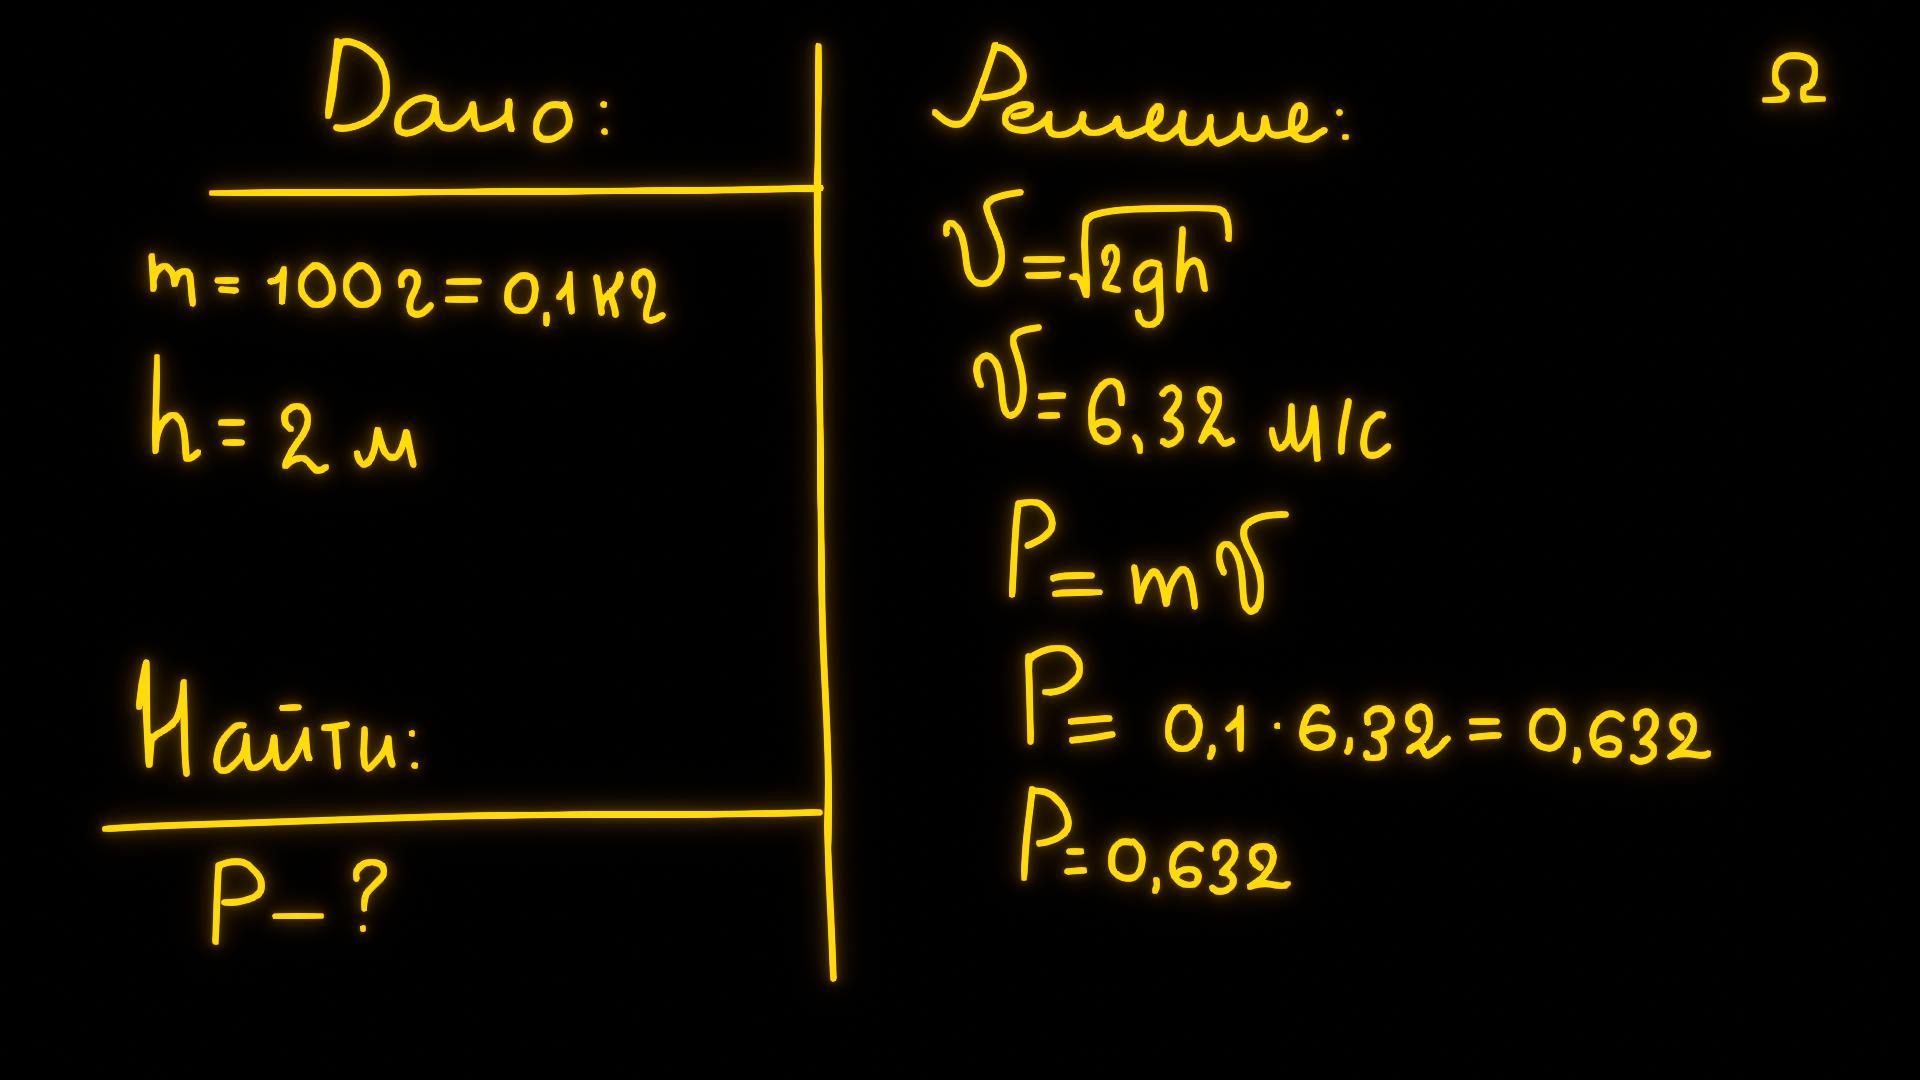 Дано:
m = 100 г = 0,1 кг
h = 2 м
Найти:
P – ?
Решение:
v = √2gh
v = 6,32 м/с
P = mv
P = 0,1 · 6,32 = 0,632
P = 0,632
Ω